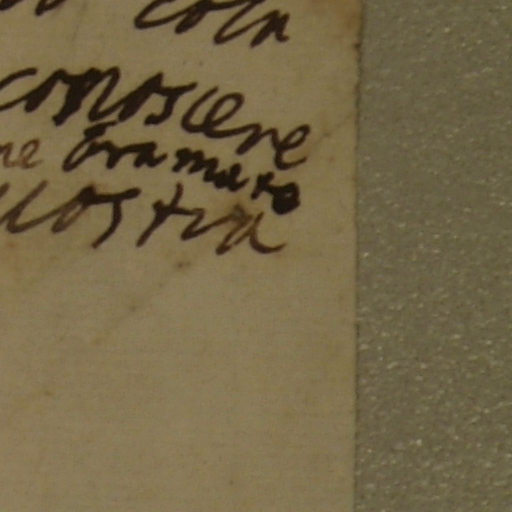 coln
conoscere
ne bramato
uostra